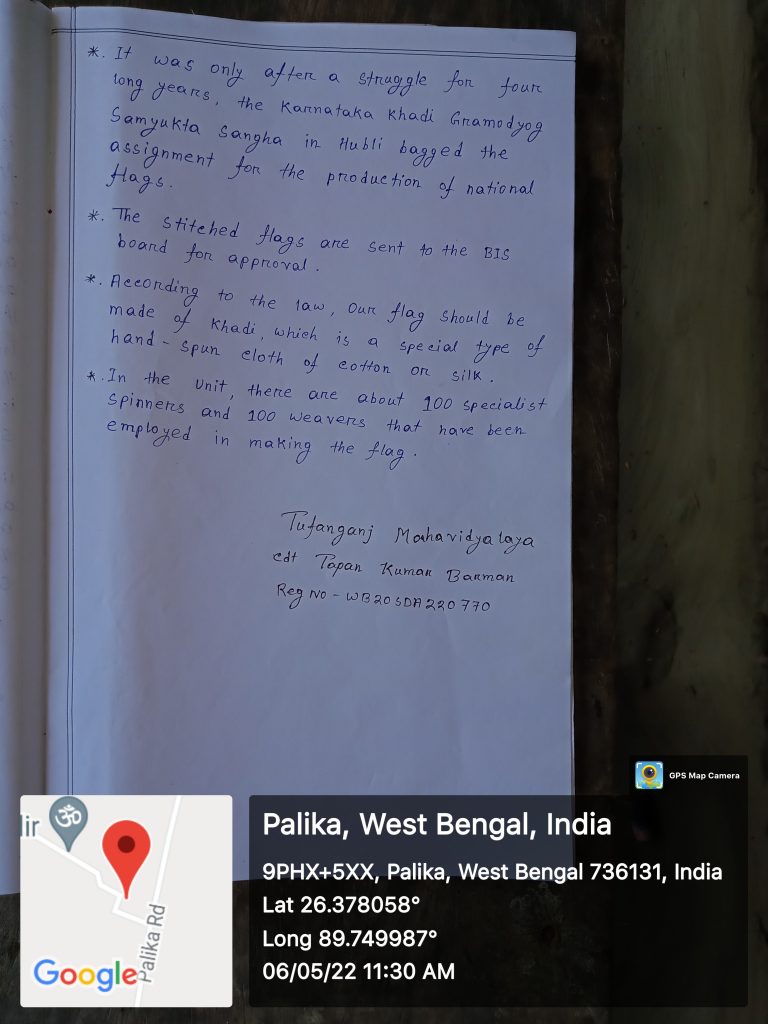 *. It was only after a struggle for four
long years, the Karnataka Khadi Gramodyog
Samyukta Sangha in Hubli bagged the
assignment for the production of national
flags.
*. The stitched flags are sent to the BIS
board for approval.
*. According to the law, our flag should be
made of Khadi, which is a special type of
hand-spun cloth of cotton or silk.
*. In the unit, there are about 100 specialist
spinners and 100 weavers that have been
employed in making the flag.
Tufanganj Mahavidyalaya
cdt Tapan Kumar Barman
Reg No - WB20SDA220770
GPS Map Camera
ir
ॐ
Palika Rd
Google
Palika, West Bengal, India
9PHX+5XX, Palika, West Bengal 736131, India
Lat 26.378058°
Long 89.749987°
06/05/22 11:30 AM